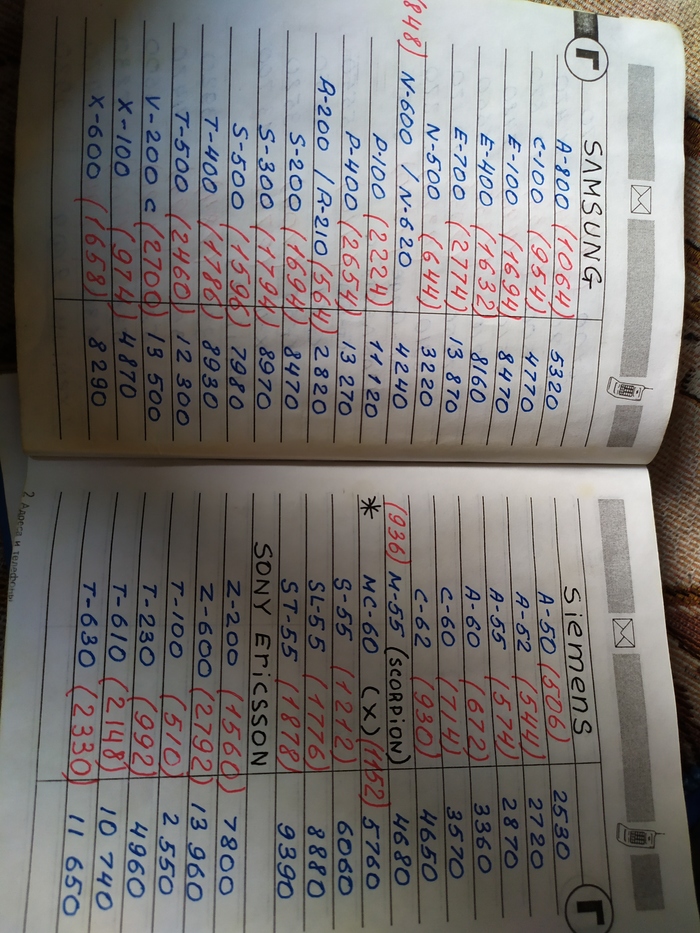 Г
SAMSUNG
A-800 (1064) 5320
C-100 (954) 4770
E-100 (1694) 8470
E-400 (1632) 8160
E-700 (2774) 13 870
N-500 (644) 3220
(848) N-600 / N-620 4240
P-100 (2224) 11 120
P-400 (2654) 13 270
A-200 / R-210 (564) 2820
S-200 (1694) 8470
S-300 (1794) 8970
S-500 (1596) 7980
T-400 (1786) 8930
T-500 (2460) 12 300
V-200 C (2700) 13 500
X-100 (974) 4870
X-600 (1658) 8290
Г
Siemens
A-50 (506) 2530
A-52 (544) 2720
A-55 (574) 2870
A-60 (672) 3360
C-60 (714) 3570
C-62 (930) 4650
(936) M-55 (SCORPION) 4680
* MC-60 (X) (1152) 5760
S-55 (1212) 6060
SL-55 (1776) 8880
ST-55 (1878) 9390
SONY ERICSSON
Z-200 (1560) 7800
Z-600 (2792) 13 960
T-100 (510) 2 550
T-230 (992) 4960
T-610 (2148) 10 740
T-630 (2330) 11 650
2 Адреса и телефоны